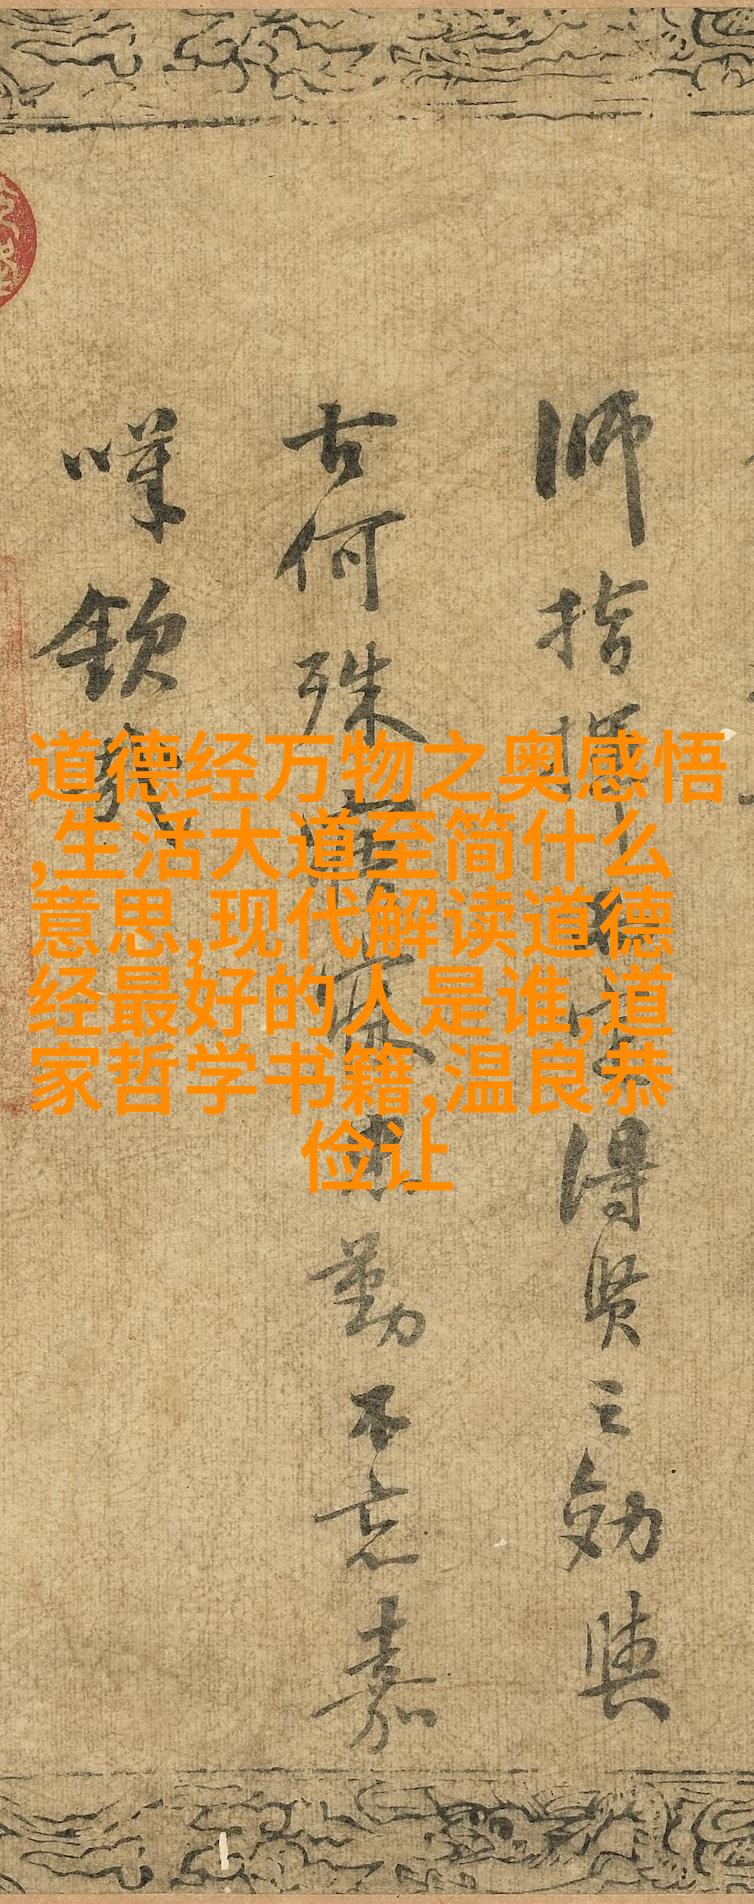 道德经万物之奥感悟
,生活大道至简什么
意思,现代解读道德
经最好的人是谁,道
家哲学书籍,温良恭
俭让
師指揮得賢之効與
古何殊寐勤不忘嘉
嘆欽